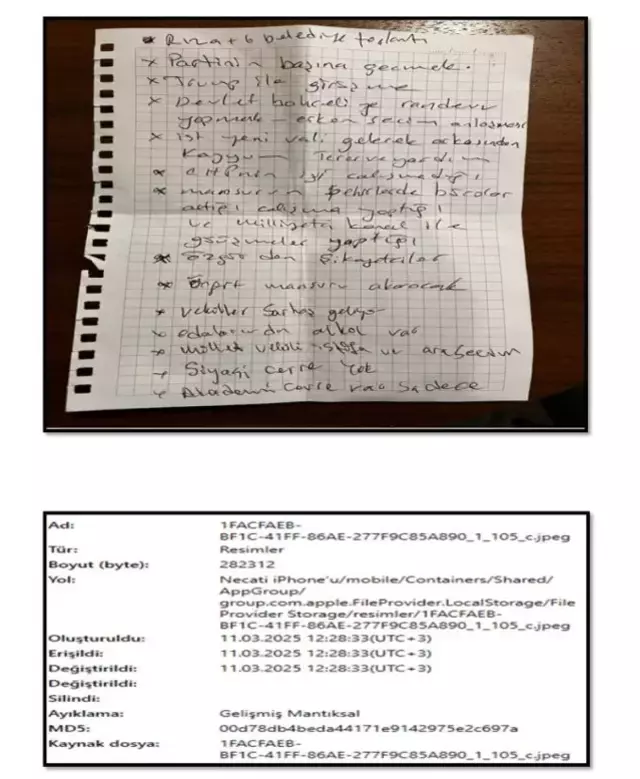 * Rıza + 6 belediye toplantı
* Partinin başına geçmek.
* Trump ile görüşme
* Devlet bahceli ye randevu
yapmak – erken secim anlaşması
* ist yeni vali gelecek arkasından
Kayyum Terere yardım
* CHPnin iyi calışmadığı
* mansurun Şehirlerde bürolar
actığı calışma yaptığı
ve milliyetci kanal ile
görüşmeler yaptığı
* Özgür den Şikayetciler
* mansuru alacak
* vekiller Sarhoş geliyo
* odalarında alkol var
* millet vekili istifa ve ara secim
* Siyasi cevre Yok
* Akademi Cevre var Sadece
Ad: 1FACFAEB-
BF1C-41FF-86AE-277F9C85A890_1_105_c.jpeg
Tür: Resimler
Boyut (byte): 282312
Yol: Necati iPhone'u/mobile/Containers/Shared/
AppGroup/
group.com.apple.FileProvider.LocalStorage/File
Provider Storage/resimler/1FACFAEB-
BF1C-41FF-86AE-277F9C85A890_1_105_c.jpeg
Oluşturuldu: 11.03.2025 12:28:33(UTC+3)
Erişildi: 11.03.2025 12:28:33(UTC+3)
Değiştirildi: 11.03.2025 12:28:33(UTC+3)
Değiştirildi:
Silindi:
Ayıklama: Gelişmiş Mantıksal
MD5: 00d78db4beda44171e9142975e2c697a
Kaynak dosya: 1FACFAEB-
BF1C-41FF-86AE-277F9C85A890_1_105_c.jpeg